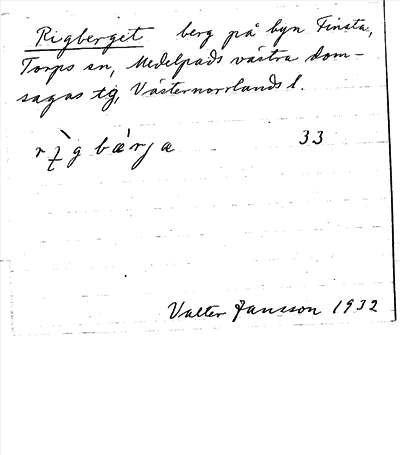 Rigberget berg på byn Finsta,
Torps sn, Medelpads västra dom-
sagas tg, Västernorrlands l.
33
Valter Jansson 1932